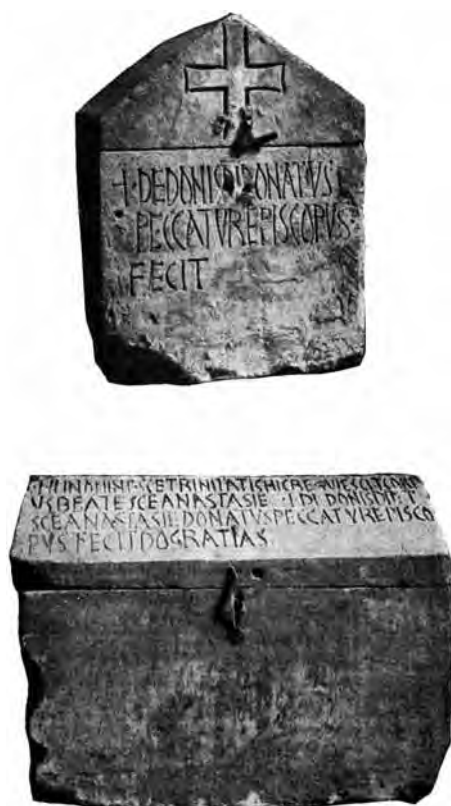 + DE DONIS DI DONATUS
PECCATUR EPISCOPUS
FECIT
+ IN NOMINE SCE TRINITATIS HIC REQUIESCIT CORP
US BEATE SCE ANASTASIE DE DONIS DI ET
SCE ANASTASIE DONATUS PECCATUR EPISCO
PUS FECIT DO GRATIAS